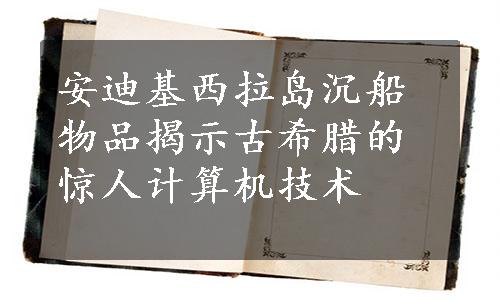 安迪基西拉岛沉船
物品揭示古希腊的
惊人计算机技术